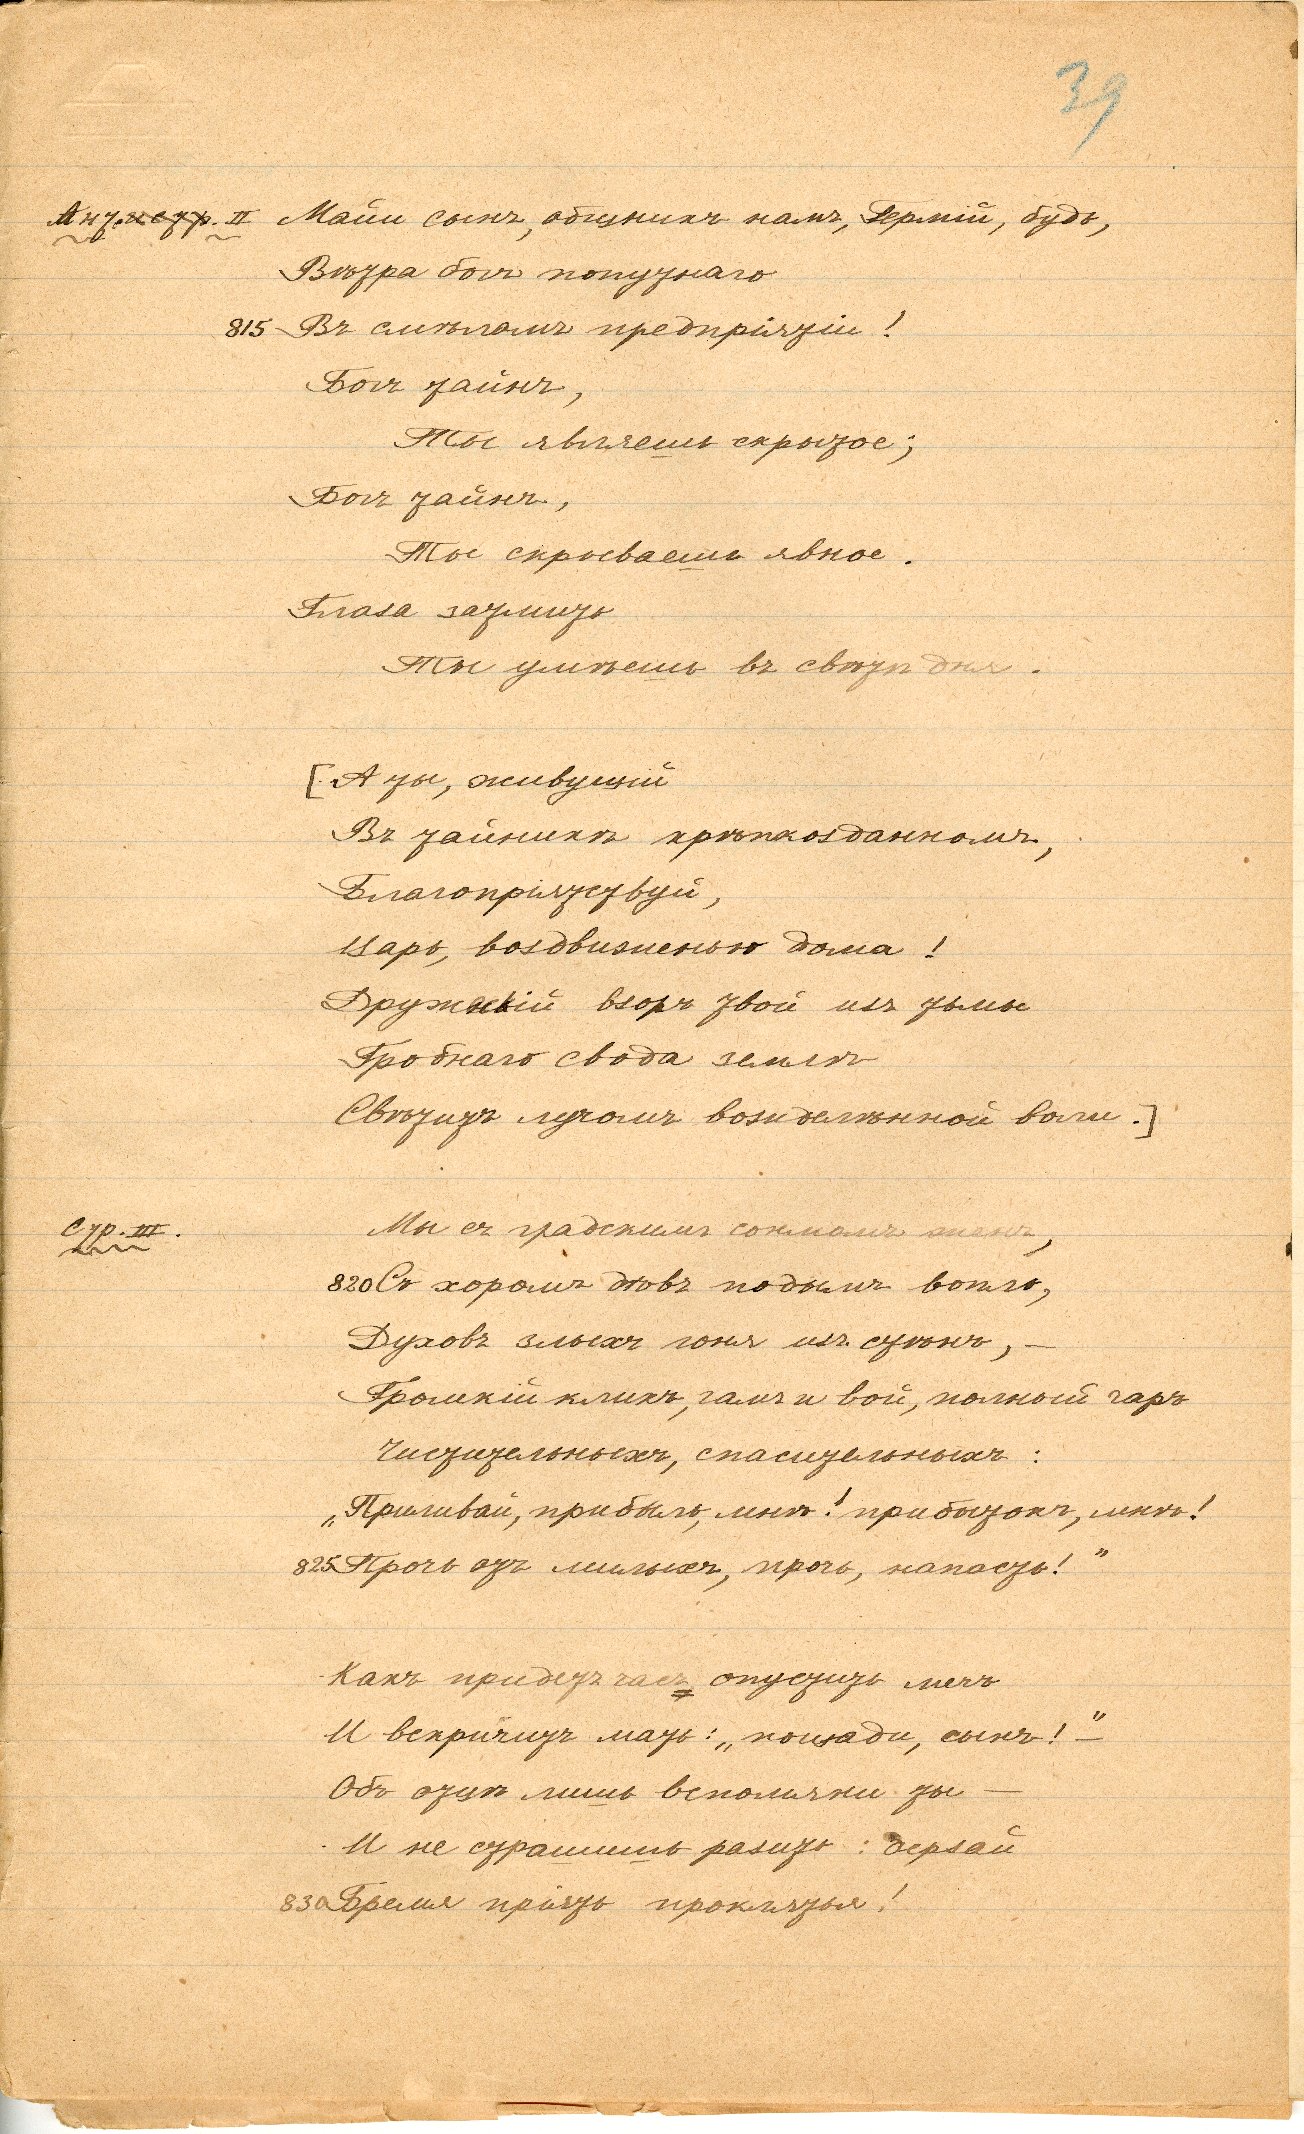 39
Ант. II Майи сынъ, общникъ намъ, Гермій, будь,
Вѣтра богъ попутнаго
815 Въ смѣломъ предпріятіи!
Богъ тайнъ,
Ты являешь скрытое;
Богъ тайнъ,
Ты скрываешь явное.
Глаза затмить
Ты умѣешь въ свѣтѣ дня.
[А ты, живущій
Въ тайникѣ крѣпкозданномъ,
Благопріятствуй,
Царь, воздвиженью дома!
Дружній взоръ твой изъ тьмы
Гробнаго свода землѣ
Свѣтитъ лучомъ вожделѣнной воли.]
Стр. III. Мы съ градскимъ сонмомъ женъ,
820 Съ хоромъ дѣвъ подымъ вопль,
Духовъ злыхъ гоня изъ стѣнъ, —
Громкій кликъ, гамъ и вой, полный чаръ
Чистительныхъ, спасительныхъ:
„Приливай, прибыль, мнѣ! прибытокъ, мнѣ!
825 Прочь отъ милыхъ, прочь, напасть!"
Какъ придетъ часъ опустить мечъ
И вскричитъ мать: „пощади, сынъ!" —
Объ отцѣ лишь вспомяни ты —
И не страшись разить: дерзай
830 Бремя пріять проклятья!